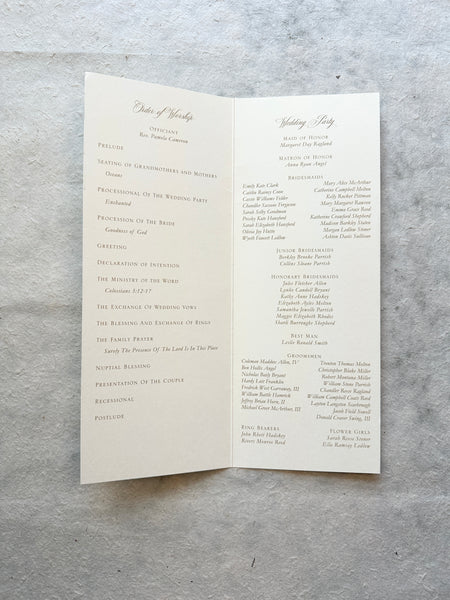 Order of Worship
Officiant
Rev. Pamela Cameron
Prelude
Seating of Grandmothers and Mothers
Oceans
Processional Of The Wedding Party
Enchanted
Procession Of The Bride
Goodness of God
Greeting
Declaration of Intention
The Ministry of the Word
Colossians 3:12-17
The Exchange Of Wedding Vows
The Blessing And Exchange Of Rings
The Family Prayer
Surely The Presence Of The Lord Is In This Place
Nuptial Blessing
Presentation Of The Couple
Recessional
Postlude
Wedding Party
Maid of Honor
Margaret Day Ragland
Matron of Honor
Anna Ryan Angel
Bridesmaids
Emily Kate Clark
Caitlin Rainey Coon
Cassie Williams Felder
Chandler Yocum Ferguson
Sarah Selby Goodman
Presley Kate Hansford
Sarah Elizabeth Hansford
Olivia Joy Hutto
Wyeth Faucett Ladlow
Mary Alice McArthur
Catherine Campbell Melton
Kelly Rocket Pittman
Mary Margaret Rawson
Emma Grace Reed
Katherine Crawford Shepherd
Madison Barkley Staten
Morgan Ladlow Stoner
Ashton Davis Sullivan
Junior Bridesmaids
Berkley Brooke Parrish
Collins Sloane Parrish
Honorary Bridesmaids
Jules Fletcher Allen
Lyndee Candell Bryant
Kathy Anne Hadskey
Elizabeth Ayles Melton
Samantha Jewelle Parrish
Maggie Elizabeth Rhodes
Shanli Burroughs Shepherd
Best Man
Leslie Ronald Smith
Groomsmen
Coleman Maddox Allen, IV
Ben Hollis Angel
Nicholas Baily Bryant
Hardy Last Franklin
Fredrick West Garraway, III
William Battle Hamrick
Jeffrey Brian Hurst, II
Michael Greer McArthur, III
Trenton Thomas Melton
Christopher Blake Miller
Robert Montana Miller
William Stone Parrish
Chandler Reece Ragland
William Campbell Coats Reed
Layton Langston Scarborough
Jacob Field Sewell
Donald Craver Swing, III
Ring Bearers
John Rhett Hadskey
Keverz Monroe Reed
Flower Girls
Sarah Reese Stoner
Ellie Ramsay Ladlow